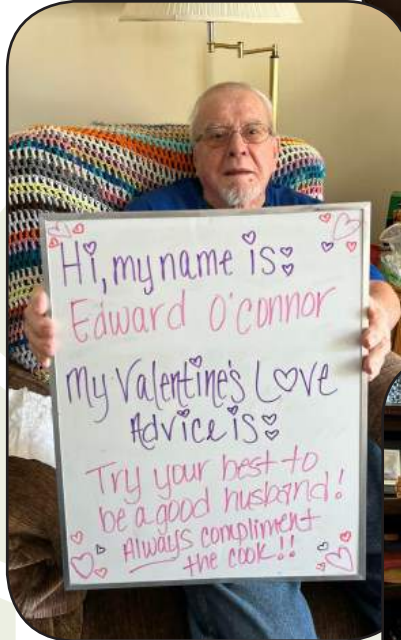 Hi, my name is:
Edward O'connor
My Valentine's Love
Advice is:
Try your best to
be a good husband!
Always compliment
the cook!!